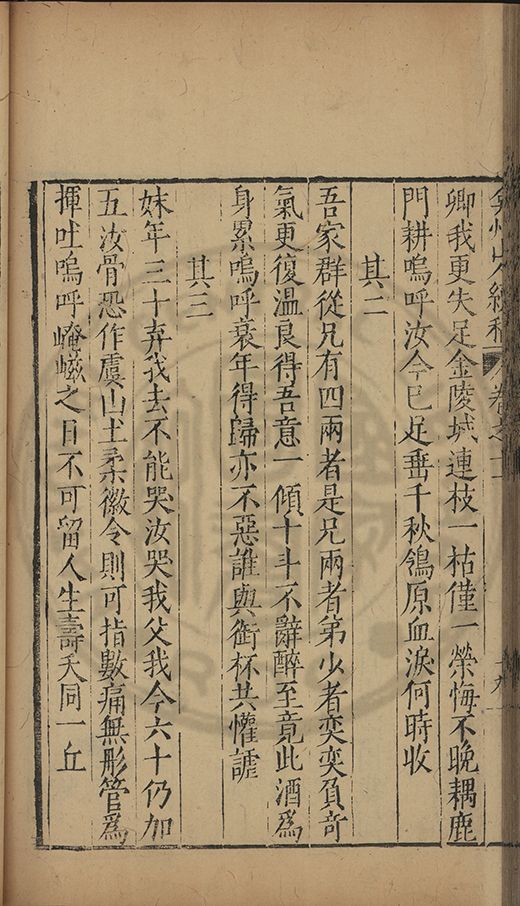 弇州山人續稿 卷之十一
卿我更失足金陵城連枝一枯僅一榮悔不晚耦鹿
門耕嗚呼汝今已足垂千秋鴒原血淚何時收
其二
吾家群從兄有四兩者是兄兩者弟少者奕奕負奇
氣更復溫良得吾意一傾十斗不辭醉至竟此酒為
身累嗚呼衰年得歸亦不惡誰與銜杯共懽謔
其三
妹年三十弃我去不能哭汝哭我父我今六十仍加
五汝骨恐作虞山土柔徽令則可指數痛無彤管為
揮吐嗚呼崦嵫之日不可留人生壽夭同一丘